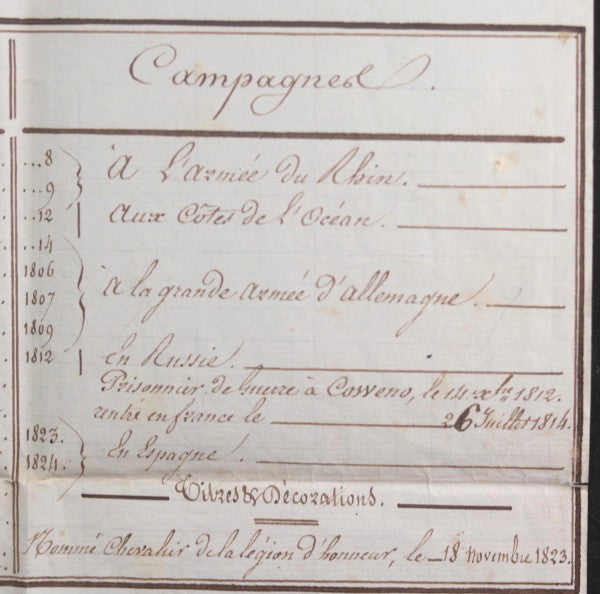 Campagnes.
...8
à L'armée du Rhin.
...9
...12 aux Côtes de L'Océan.
...14
1806
1807 à la grande armée d'allemagne.
1809
1812 en Russie.
Prisonnier de Guerre à Coweno, le 14 xbre 1812.
rentré en france le 26 Juillet 1814.
1823.
en Espagne.
1824.
Titres & Décorations.
Nommé Chevalier de la légion d'honneur, le 18 novembre 1823.